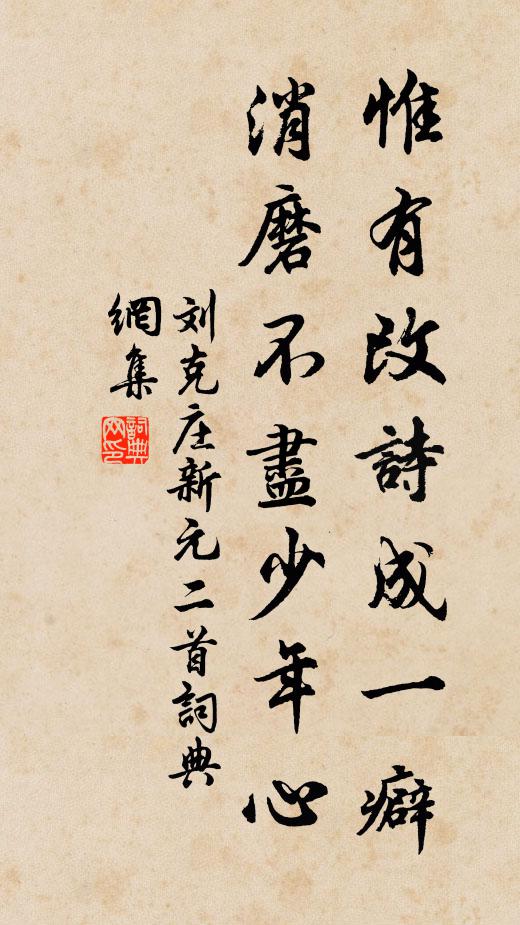 惟有改詩成一癖
消磨不盡少年心
刘克庄新元二首詞典
網集
詞典
网印